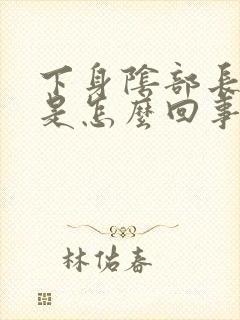 下身陰部長
是怎麼回事
林佑春